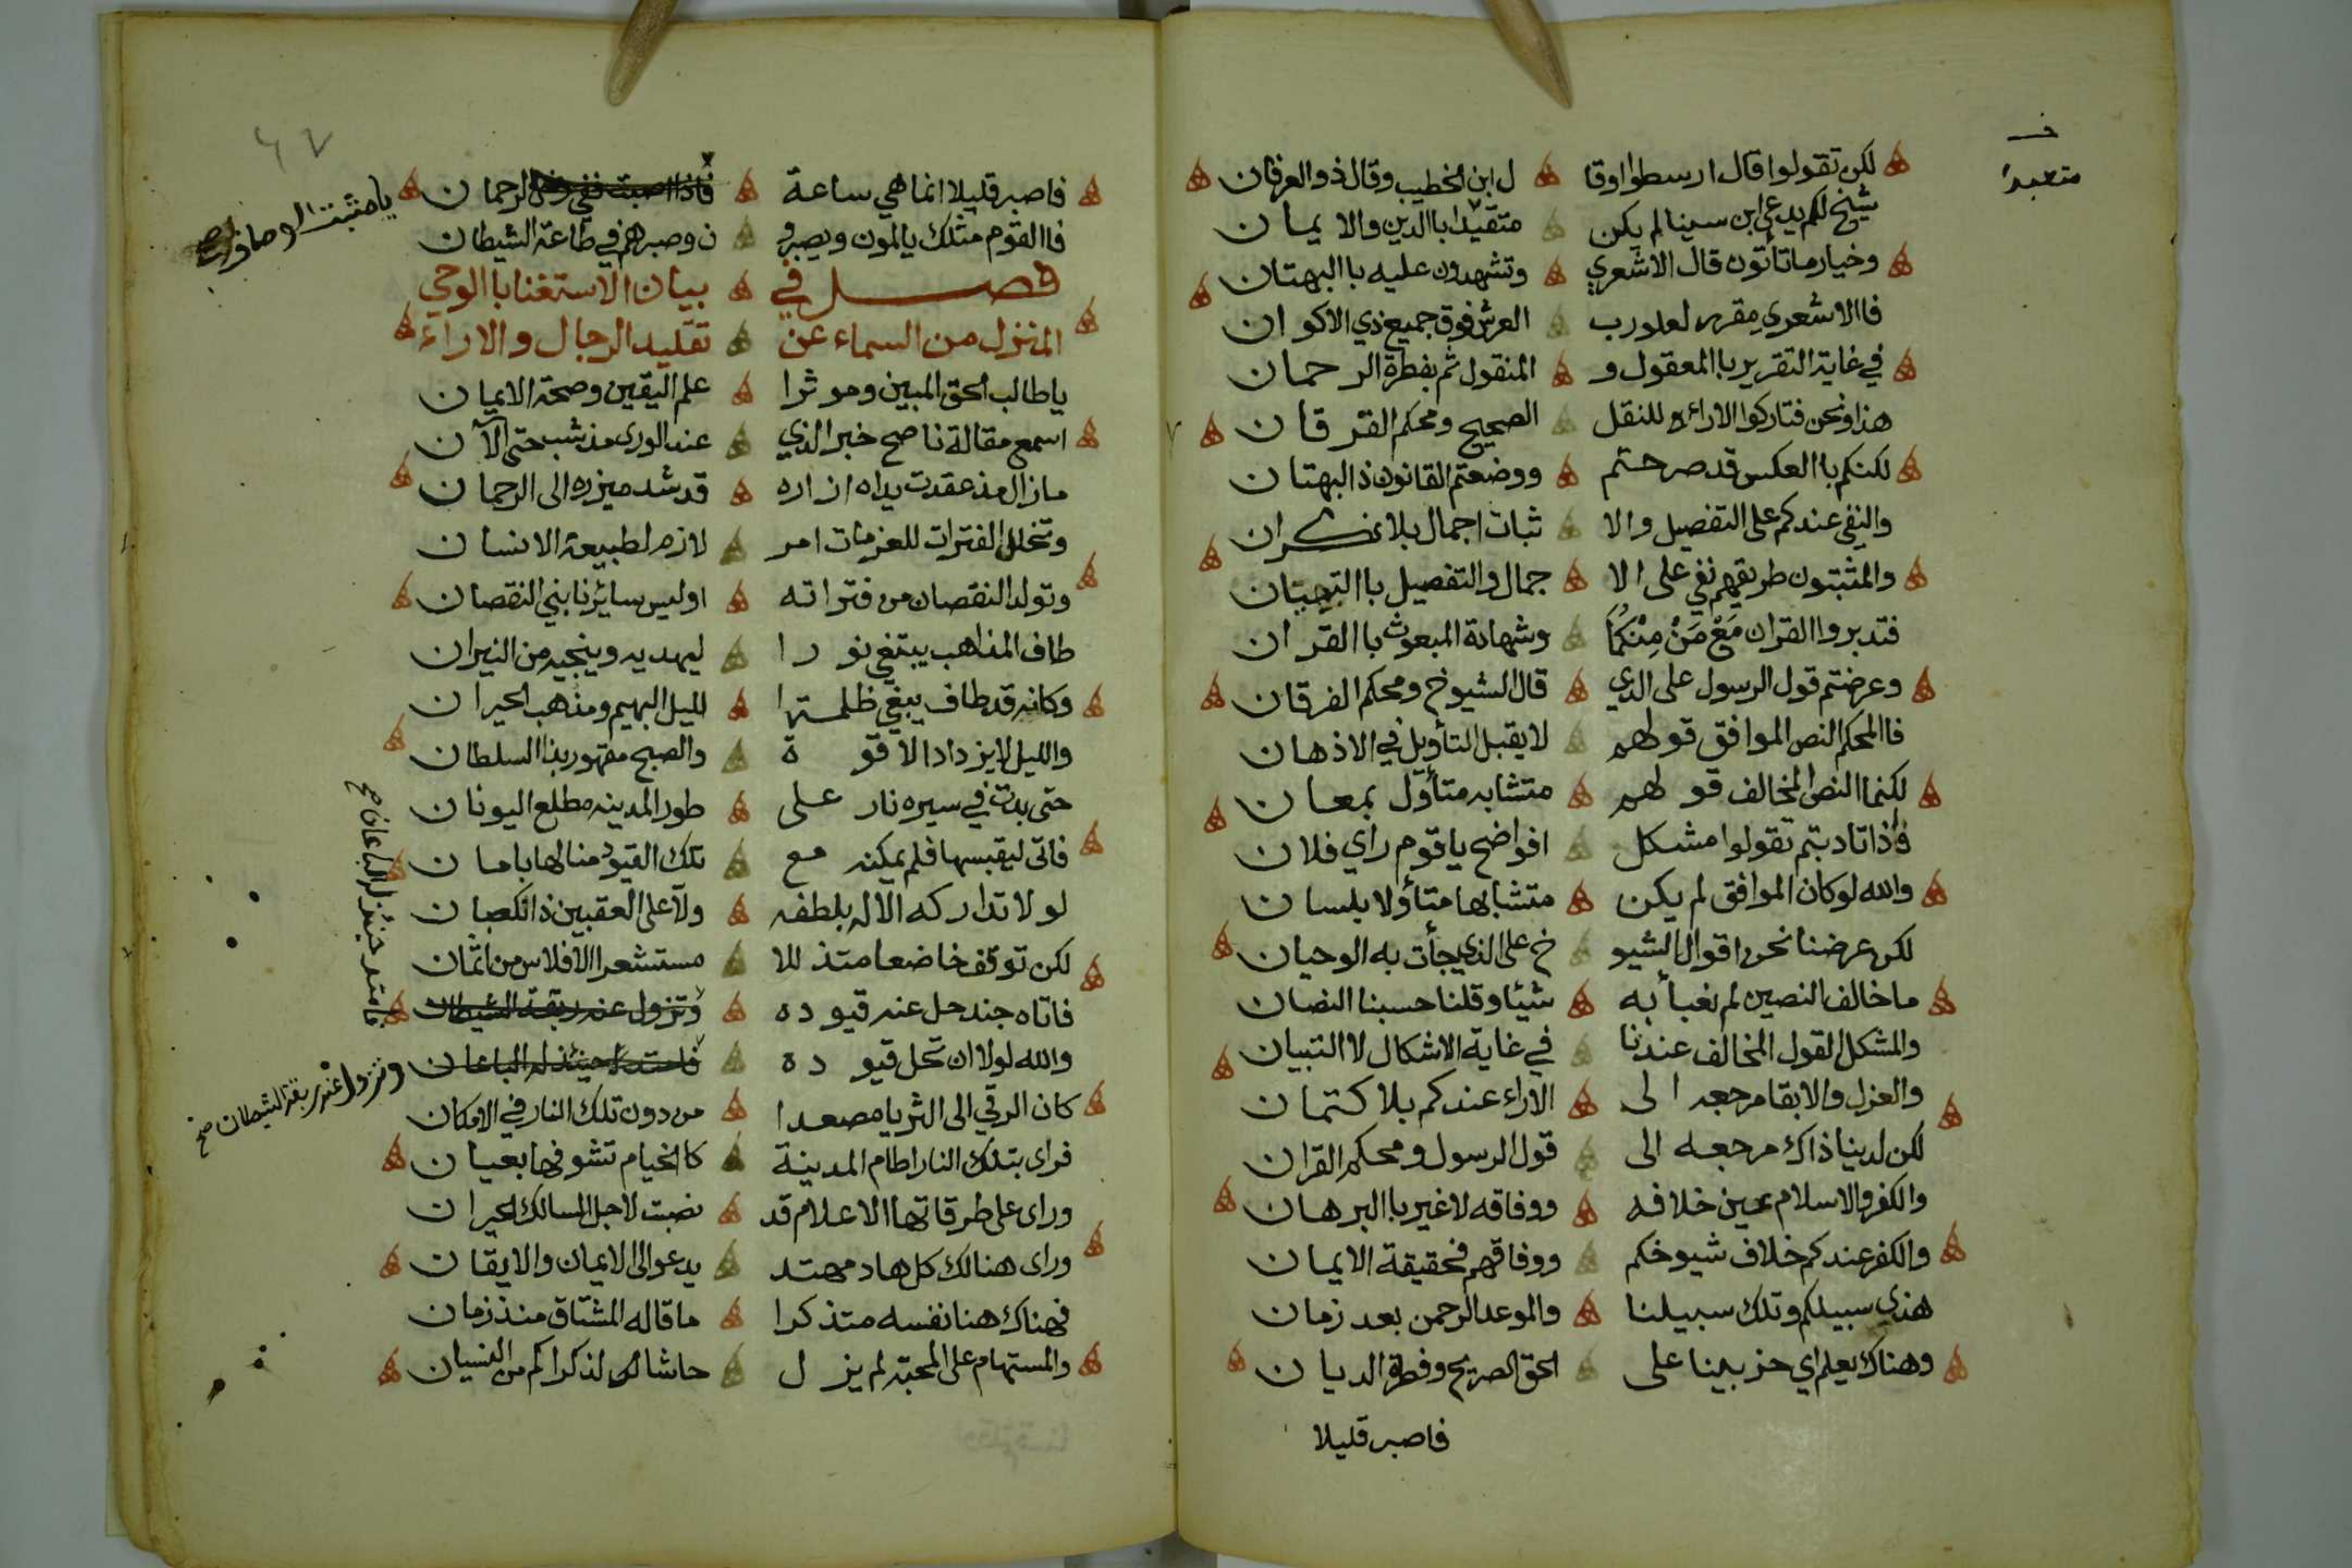 لكن تقولوا قال ارسطوا وقا ل ابن الخطيب وقال ذو العرفان
شيخ لكم يدعى ابن سينا لم يكن متقيدا باالدين والايمان
ف
متعبدا
وخيار ما تأتون قال الاشعري وتشهدون عليه باالبهتان
فاالاشعري مقرر لعلو رب العرش فوق جميع ذي الاكوان
في غاية التقرير باالمعقول و المنقول ثم بفطرة الرحمان
هذا ونحن فتاركوا الاراء للنقل الصحيح ومحكم الفرقان
لكنكم باالعكس قد صرحتم ووضعتم القانون ذا البهتان
والنفي عندكم على التفصيل والا ثبات اجمال بلا نكران
والمثبتون طريقهم نفي على الا جمال والتفصيل باالتبيان
فتدبروا القران مع من منكما وشهادة المبعوث باالقران
وعرضتم قول الرسول على الذي قال الشيوخ ومحكم الفرقان
فاالمحكم النص الموافق قولهم لا يقبل التأويل في الاذهان
لكنما النص المخالف قولهم متشابه متأول بمعان
واذا تادبتم تقولوا مشكل افواضح يا قوم راي فلان
والله لو كان الموافق لم يكن متشابها متأولا بلسان
لكن عرضنا نحن اقوال الشيو خ على الذي جأت به الوحيان
ما خالف النصين لم نعبأ به شيئا وقلنا حسبنا النصان
والمشكل القول المخالف عندنا في غاية الاشكال لا التبيان
والعزل والابقا مرجعه الى الاراء عندكم بلا كتمان
لكن لدينا ذاك مرجعه الى قول الرسول ومحكم القران
والكفر والاسلام عين خلافه ووفاقه لا غير باالبرهان
والكفر عندكم خلاف شيوخكم ووفاقهم فحقيقة الايمان
هذي سبيلكم وتلك سبيلنا والموعد الرحمن بعد زمان
وهناك يعلم اي حزبينا على الحق الصريح وفطرة الديان
فاصبر قليلا
٦٧
فاصبر قليلا انما هي ساعة فاذا اصبت ففي رضى الرحمان
يا مثبت الاوصاف
فاالقوم مثلك يالمون ويصبرو ن وصبرهم في طاعة الشيطان
فصل في بيان الاستغنا باالوحي
المنزل من السماء عن تقليد الرجال والاراء
يا طالب الحق المبين وموثرا علم اليقين وصحة الايمان
اسمع مقالة ناصح خبر الذي عند الورى مذ شب حتى الآن
ما زال مذ عقدت يداه ازاره قد شد ميزره الى الرحمان
وتخلل الفترات للعزمات امر لازم لطبيعة الانسان
وتولد النقصان من فتراته اوليس سائرنا بني النقصان
طاف المذاهب يبتغي نورا ليهديه وينجيه من النيران
وكانه قد طاف يبغي ظلمة الليل البهيم ومذهب الحيران
والليل لا يزداد الا قوة والصبح مقهور بذا السلطان
حتى بدت في سيره نار على طور المدينه مطلع اليونان
فاتى ليقبسها فلم يمكنه مع تلك القيود منالها بامان
لولا تداركه الاله بلطفه ولا على العقبين ذا نكصان
لكن توقف خاضعا متذللا مستشعر الافلاس من اثمان
فاتاه جند حل عنه قيوده وتزول عنه ربقة الشيطان
فامتد حينئذ له الباعان صح
والله لولا ان تحل قيوده فامتد حينئذ له الباعان
وتزول عنه ربقة الشيطان صح
كان الرقي الى الثريا مصعدا من دون تلك النار في الامكان
فراى بتلك النار اطام المدينة كاالخيام تشوفها بعيان
وراى على طرقاتها الاعلام قد نصبت لاجل السالك الحيران
وراى هنالك كل هاد مهتد يدعو الى الايمان والايقان
فهناك هنا نفسه متذكرا ما قاله المشتاق منذ زمان
والمستهام على المحبة لم يزل حاشا لذكراكم من النسيان